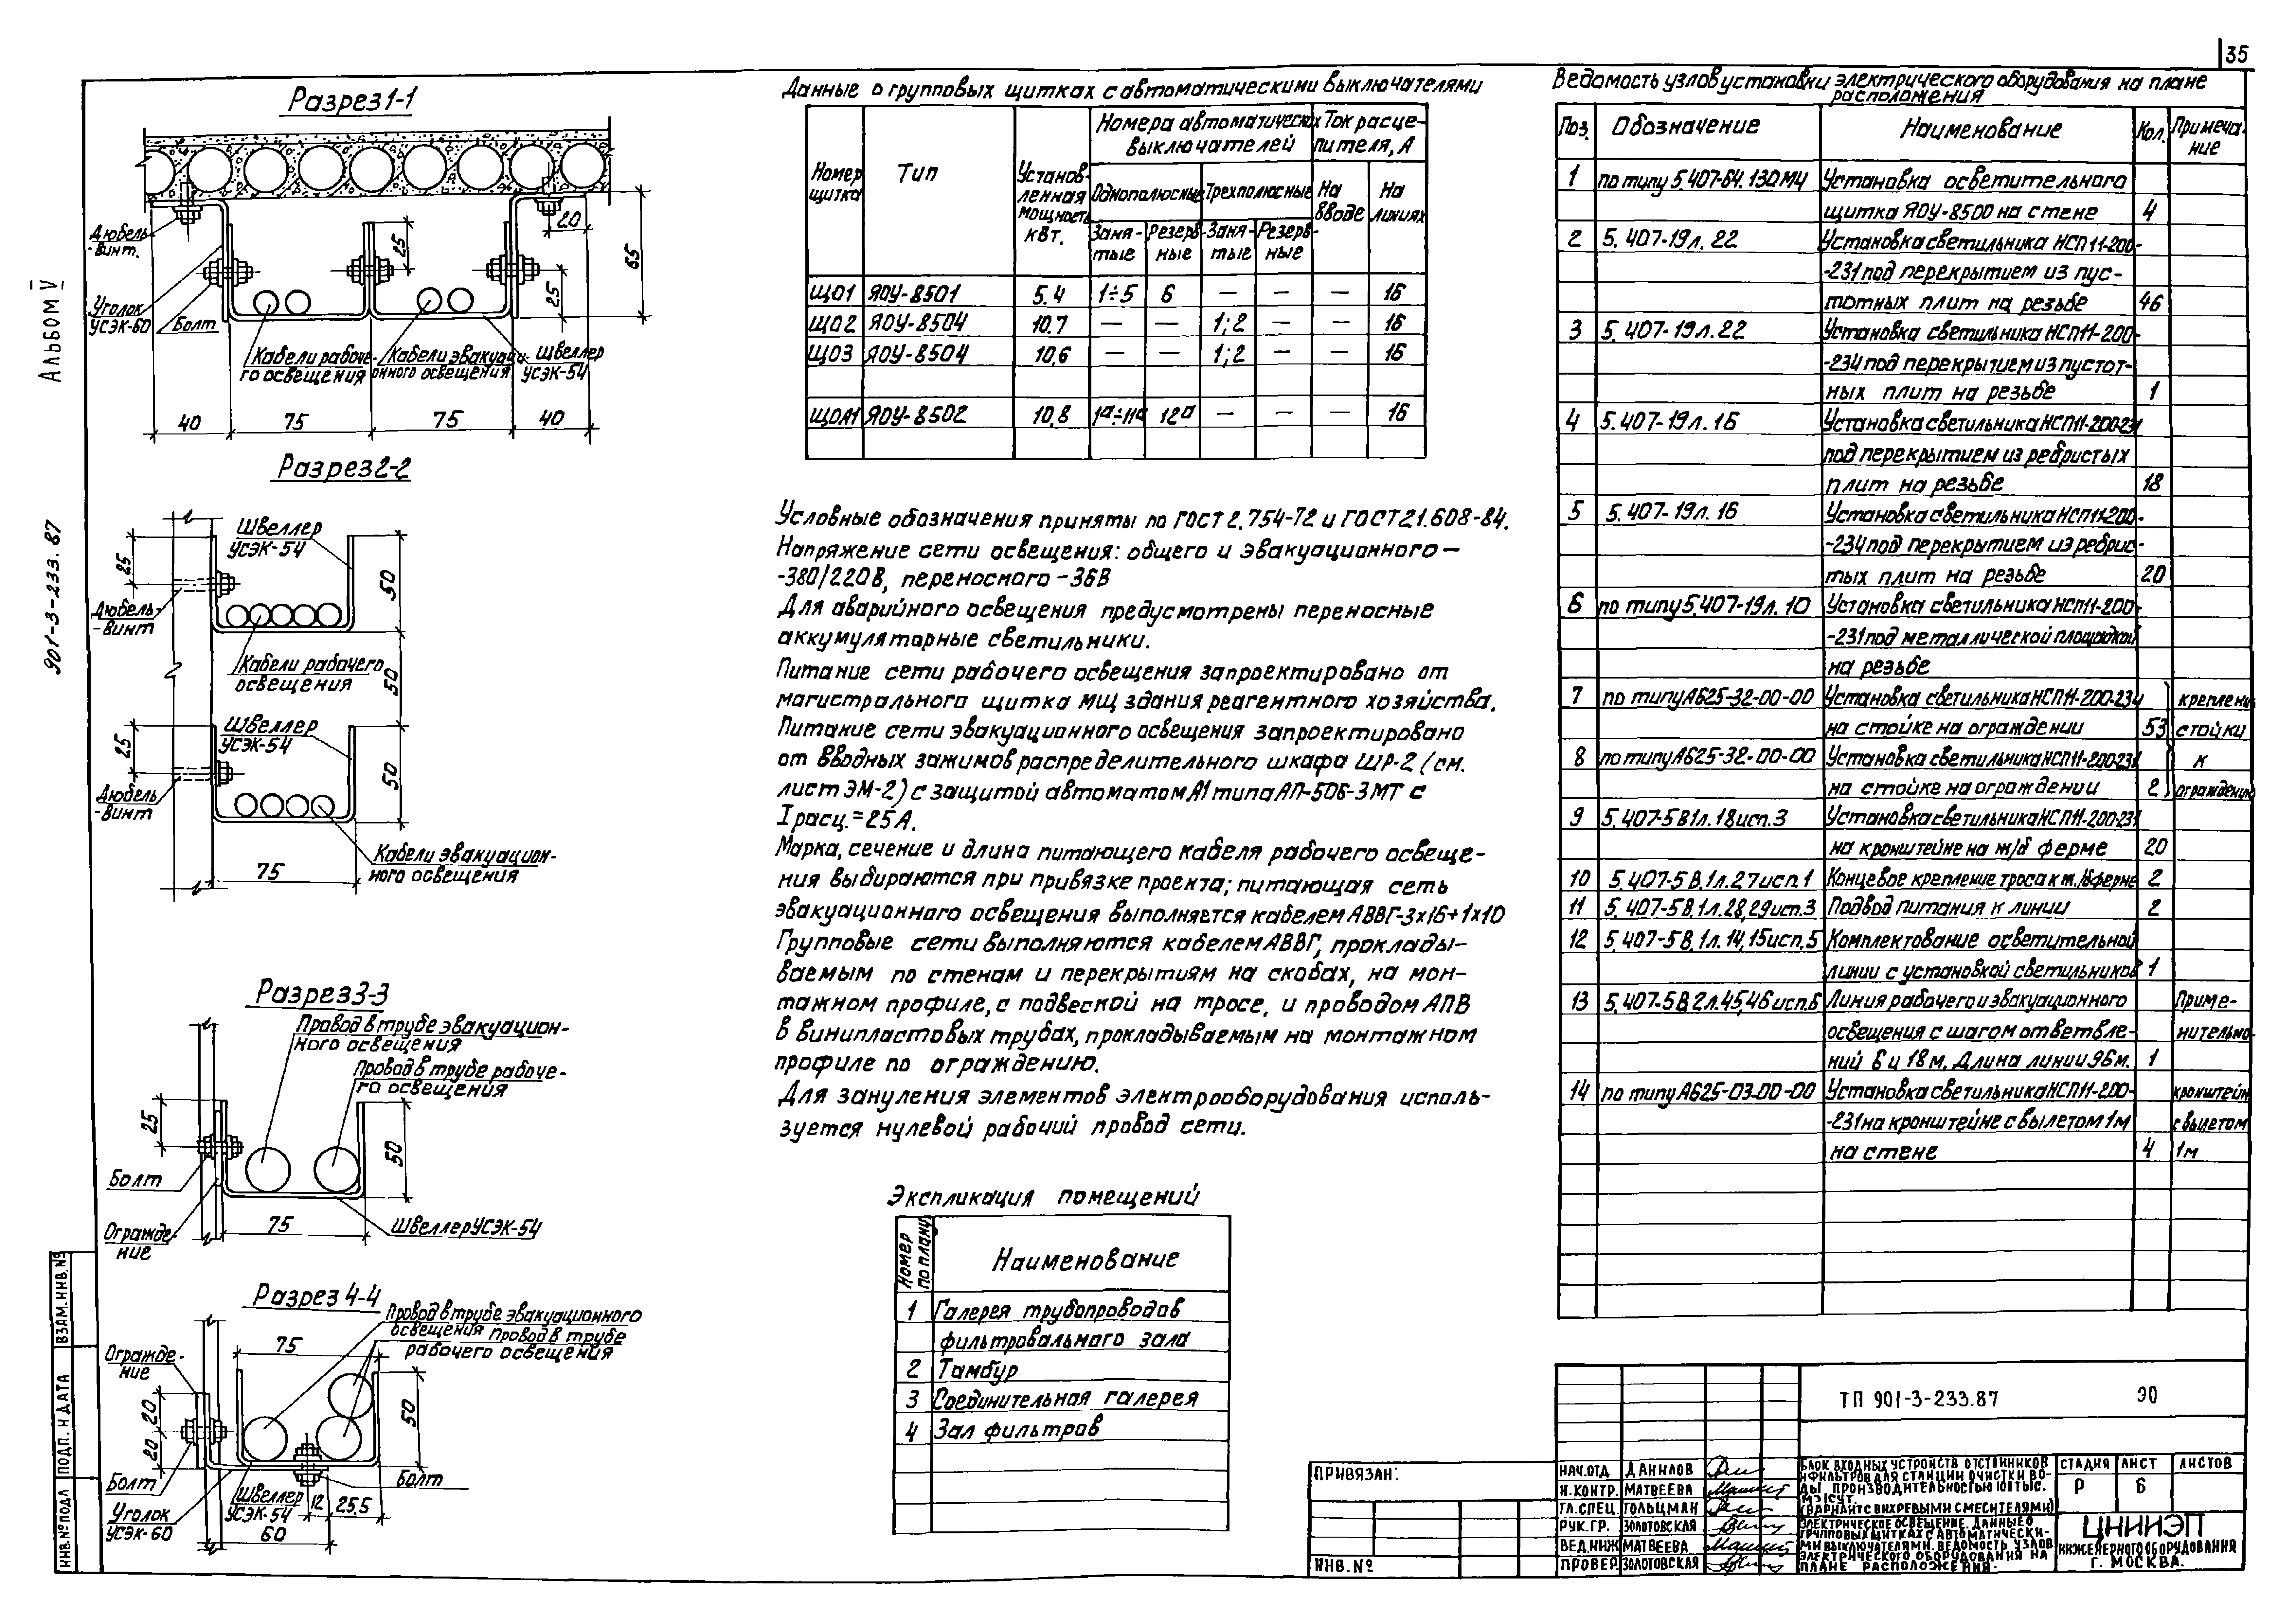 35
АЛЬБОМ V
901-3-233.87
Разрез 1-1
Дюбель-
-винт.
Уголок
УСЭК-60
Болт
Кабели рабоче-
го освещения
Кабели эвакуаци-
онного освещения
Швеллер
УСЭК-54
25
20
65
25
40
75
75
40
Разрез 2-2
Швеллер
УСЭК-54
25
50
Дюбель-
-винт
Кабели рабочего
освещения
50
Швеллер
УСЭК-54
25
50
Дюбель
-винт
Кабели эвакуацион-
ного освещения
75
Разрез 3-3
Провод в трубе эвакуацион-
ного освещения
Провод в трубе рабоче-
го освещения
25
50
Болт
75
Швеллер УСЭК-54
Огражде-
ние
Разрез 4-4
Провод в трубе эвакуационного
освещения
Провод в трубе
рабочего освещения
75
Огражде-
ние
20
20
50
Болт
Болт
Швеллер
УСЭК-54
12
25,5
Уголок
УСЭК-60
60
Данные о групповых щитках с автоматическими выключателями
Номер щитка
Тип
Установ-
ленная
мощность
кВт.
Номера автоматических
выключателей
Ток расце-
пителя, А
Однополюсные
Трехполюсные
На вводе
На линиях
Заня-
тые
Резерв-
ные
Заня-
тые
Резерв-
ные
ЩО1 ЯОУ-8501 5.4 1÷5 6 — — — 16
ЩО2 ЯОУ-8504 10,7 — — 1;2 — — 16
ЩО3 ЯОУ-8504 10,6 — — 1;2 — — 16
ЩОА1 ЯОУ-8502 10,8 1а÷11а 12а — — — 16
Условные обозначения приняты по ГОСТ 2.754-72 и ГОСТ 21.608-84.
Напряжение сети освещения: общего и эвакуационного —
-380/220В, переносного - 36В
Для аварийного освещения предусмотрены переносные
аккумуляторные светильники.
Питание сети рабочего освещения запроектировано от
магистрального щитка МЩ здания реагентного хозяйства.
Питание сети эвакуационного освещения запроектировано
от вводных зажимов распределительного шкафа ШР-2 (см.
лист ЭМ-2) с защитой автоматом А1 типа АП-50Б-3МТ с
Iрасц.=25А.
Марка, сечение и длина питающего кабеля рабочего освеще-
ния выбираются при привязке проекта; питающая сеть
эвакуационного освещения выполняется кабелем АВВГ-3х16+1х10
Групповые сети выполняются кабелем АВВГ, проклады-
ваемым по стенам и перекрытиям на скобах, на мон-
тажном профиле, с подвеской на тросе, и проводом АПВ
в винипластовых трубах, прокладываемым на монтажном
профиле по ограждению.
Для зануления элементов электрооборудования исполь-
зуется нулевой рабочий провод сети.
Экспликация помещений
Номер по плану
Наименование
1 Галерея трубопроводов
фильтровального зала
2 Тамбур
3 Соединительная галерея
4 Зал фильтров
Ведомость узлов установки электрического оборудования на плане
расположения
Поз. Обозначение Наименование Кол. Примеча-
ние
1 по типу 5.407-64.130МЧ Установка осветительного
щитка ЯОУ-8500 на стене 4
2 5.407-19 л.22 Установка светильника НСП11-200-
-231 под перекрытием из пус-
тотных плит на резьбе 46
3 5.407-19 л.22 Установка светильника НСП11-200-
-234 под перекрытием из пустот-
ных плит на резьбе 1
4 5.407-19 л.16 Установка светильника НСП11-200-231
под перекрытием из ребристых
плит на резьбе 18
5 5.407-19 л.16 Установка светильника НСП11-200-
-234 под перекрытием из ребрис-
тых плит на резьбе 20
6 по типу 5.407-19 л.10 Установка светильника НСП11-200-
-231 под металлической площадкой
на резьбе
7 по типу А625-32-00-00 Установка светильника НСП11-200-234 крепление
на стойке на ограждении 53 стойки
8 по типу А625-32-00-00 Установка светильника НСП11-200-231 к
на стойке на ограждении 2 ограждению
9 5.407-5 В1 л.18 исп.3 Установка светильника НСП11-200-231
на кронштейне на ж/б ферме 20
10 5.407-5 В.1 л.27 исп.1 Концевое крепление троса к ж./б ферме 2
11 5.407-5 В.1 л.28,29 исп.3 Подвод питания к линии 2
12 5.407-5 В.1 л.14,15 исп.5 Комплектование осветительной
линии с установкой светильников 1
13 5.407-5 В.2 л.45,46 исп.6 Линия рабочего и эвакуационного Приме-
освещения с шагом ответвле- нительно
ний 6 и 18 м. Длина линии 96м. 1
14 по типу А625-03-00-00 Установка светильника НСП11-200- кронштейн
-231 на кронштейне с вылетом 1м с вылетом
на стене 4 1м
ТП 901-3-233.87 ЭО
ПРИВЯЗАН:
ИНВ.№
НАЧ.ОТД ДАНИЛОВ
Н.КОНТР. МАТВЕЕВА
ГЛ.СПЕЦ. ГОЛЬЦМАН
РУК.ГР. ЗОЛОТОВСКАЯ
ВЕД.ИНЖ МАТВЕЕВА
ПРОВЕР. ЗОЛОТОВСКАЯ
БЛОК ВХОДНЫХ УСТРОЙСТВ ОТСТОЙНИКОВ
И ФИЛЬТРОВ ДЛЯ СТАНЦИИ ОЧИСТКИ ВО-
ДЫ ПРОИЗВОДИТЕЛЬНОСТЬЮ 100 ТЫС.
М3/СУТ.
(ВАРИАНТ С ВИХРЕВЫМИ СМЕСИТЕЛЯМИ)
ЭЛЕКТРИЧЕСКОЕ ОСВЕЩЕНИЕ. ДАННЫЕ О
ГРУППОВЫХ ЩИТКАХ С АВТОМАТИЧЕСКИ-
МИ ВЫКЛЮЧАТЕЛЯМИ. ВЕДОМОСТЬ УЗЛОВ
ЭЛЕКТРИЧЕСКОГО ОБОРУДОВАНИЯ НА
ПЛАНЕ РАСПОЛОЖЕНИЯ.
СТАДИЯ ЛИСТ ЛИСТОВ
Р 6
ЦНИИЭП
ИНЖЕНЕРНОГО ОБОРУДОВАНИЯ
Г. МОСКВА.
ВЗАМ.ИНВ.№
ПОДП. И ДАТА
ИНВ.№ ПОДЛ